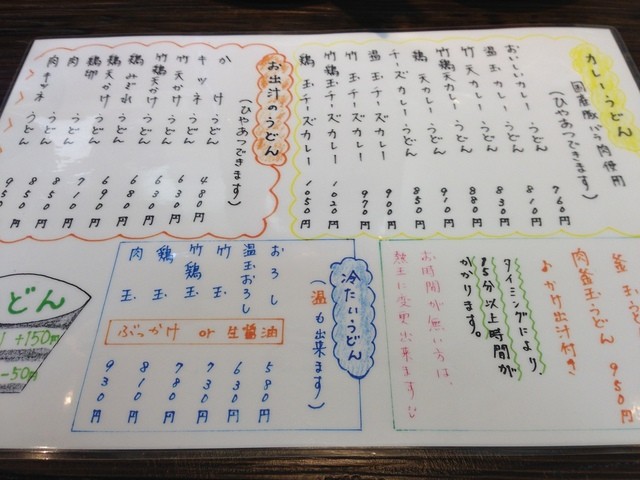 カレーうどん
国産豚バラ肉使用
(ひやあつできます)
おいしいカレーうどん 760円
温玉カレーうどん 810円
竹天カレーうどん 830円
鶏天カレーうどん 880円
竹鶏天カレーうどん 910円
チーズカレーうどん 850円
温玉チーズカレー 900円
竹玉チーズカレー 970円
鶏玉チーズカレー 1020円
竹鶏玉チーズカレー 1050円
お出汁のうどん
(ひやあつできます)
かけうどん 480円
キツネうどん
竹天かけうどん 630円
竹鶏天かけうどん
鶏天かけうどん 680円
鶏みぞれうどん 690円
鶏卵うどん 710円
肉うどん 850円
肉キツネうどん 950円
肉釜玉うどん 950円
♪かけ出汁付き
タイミングにより、
15分以上時間が
かかります。
お時間が無い方は、
熱玉に変更出来ますよ
冷たいうどん
(温も出来ます)
おろし 580円
温玉おろし 630円
竹玉 730円
竹鶏玉 780円
鶏玉 810円
肉玉 930円
ぶっかけ or 生醤油
どん
+150円
-50円